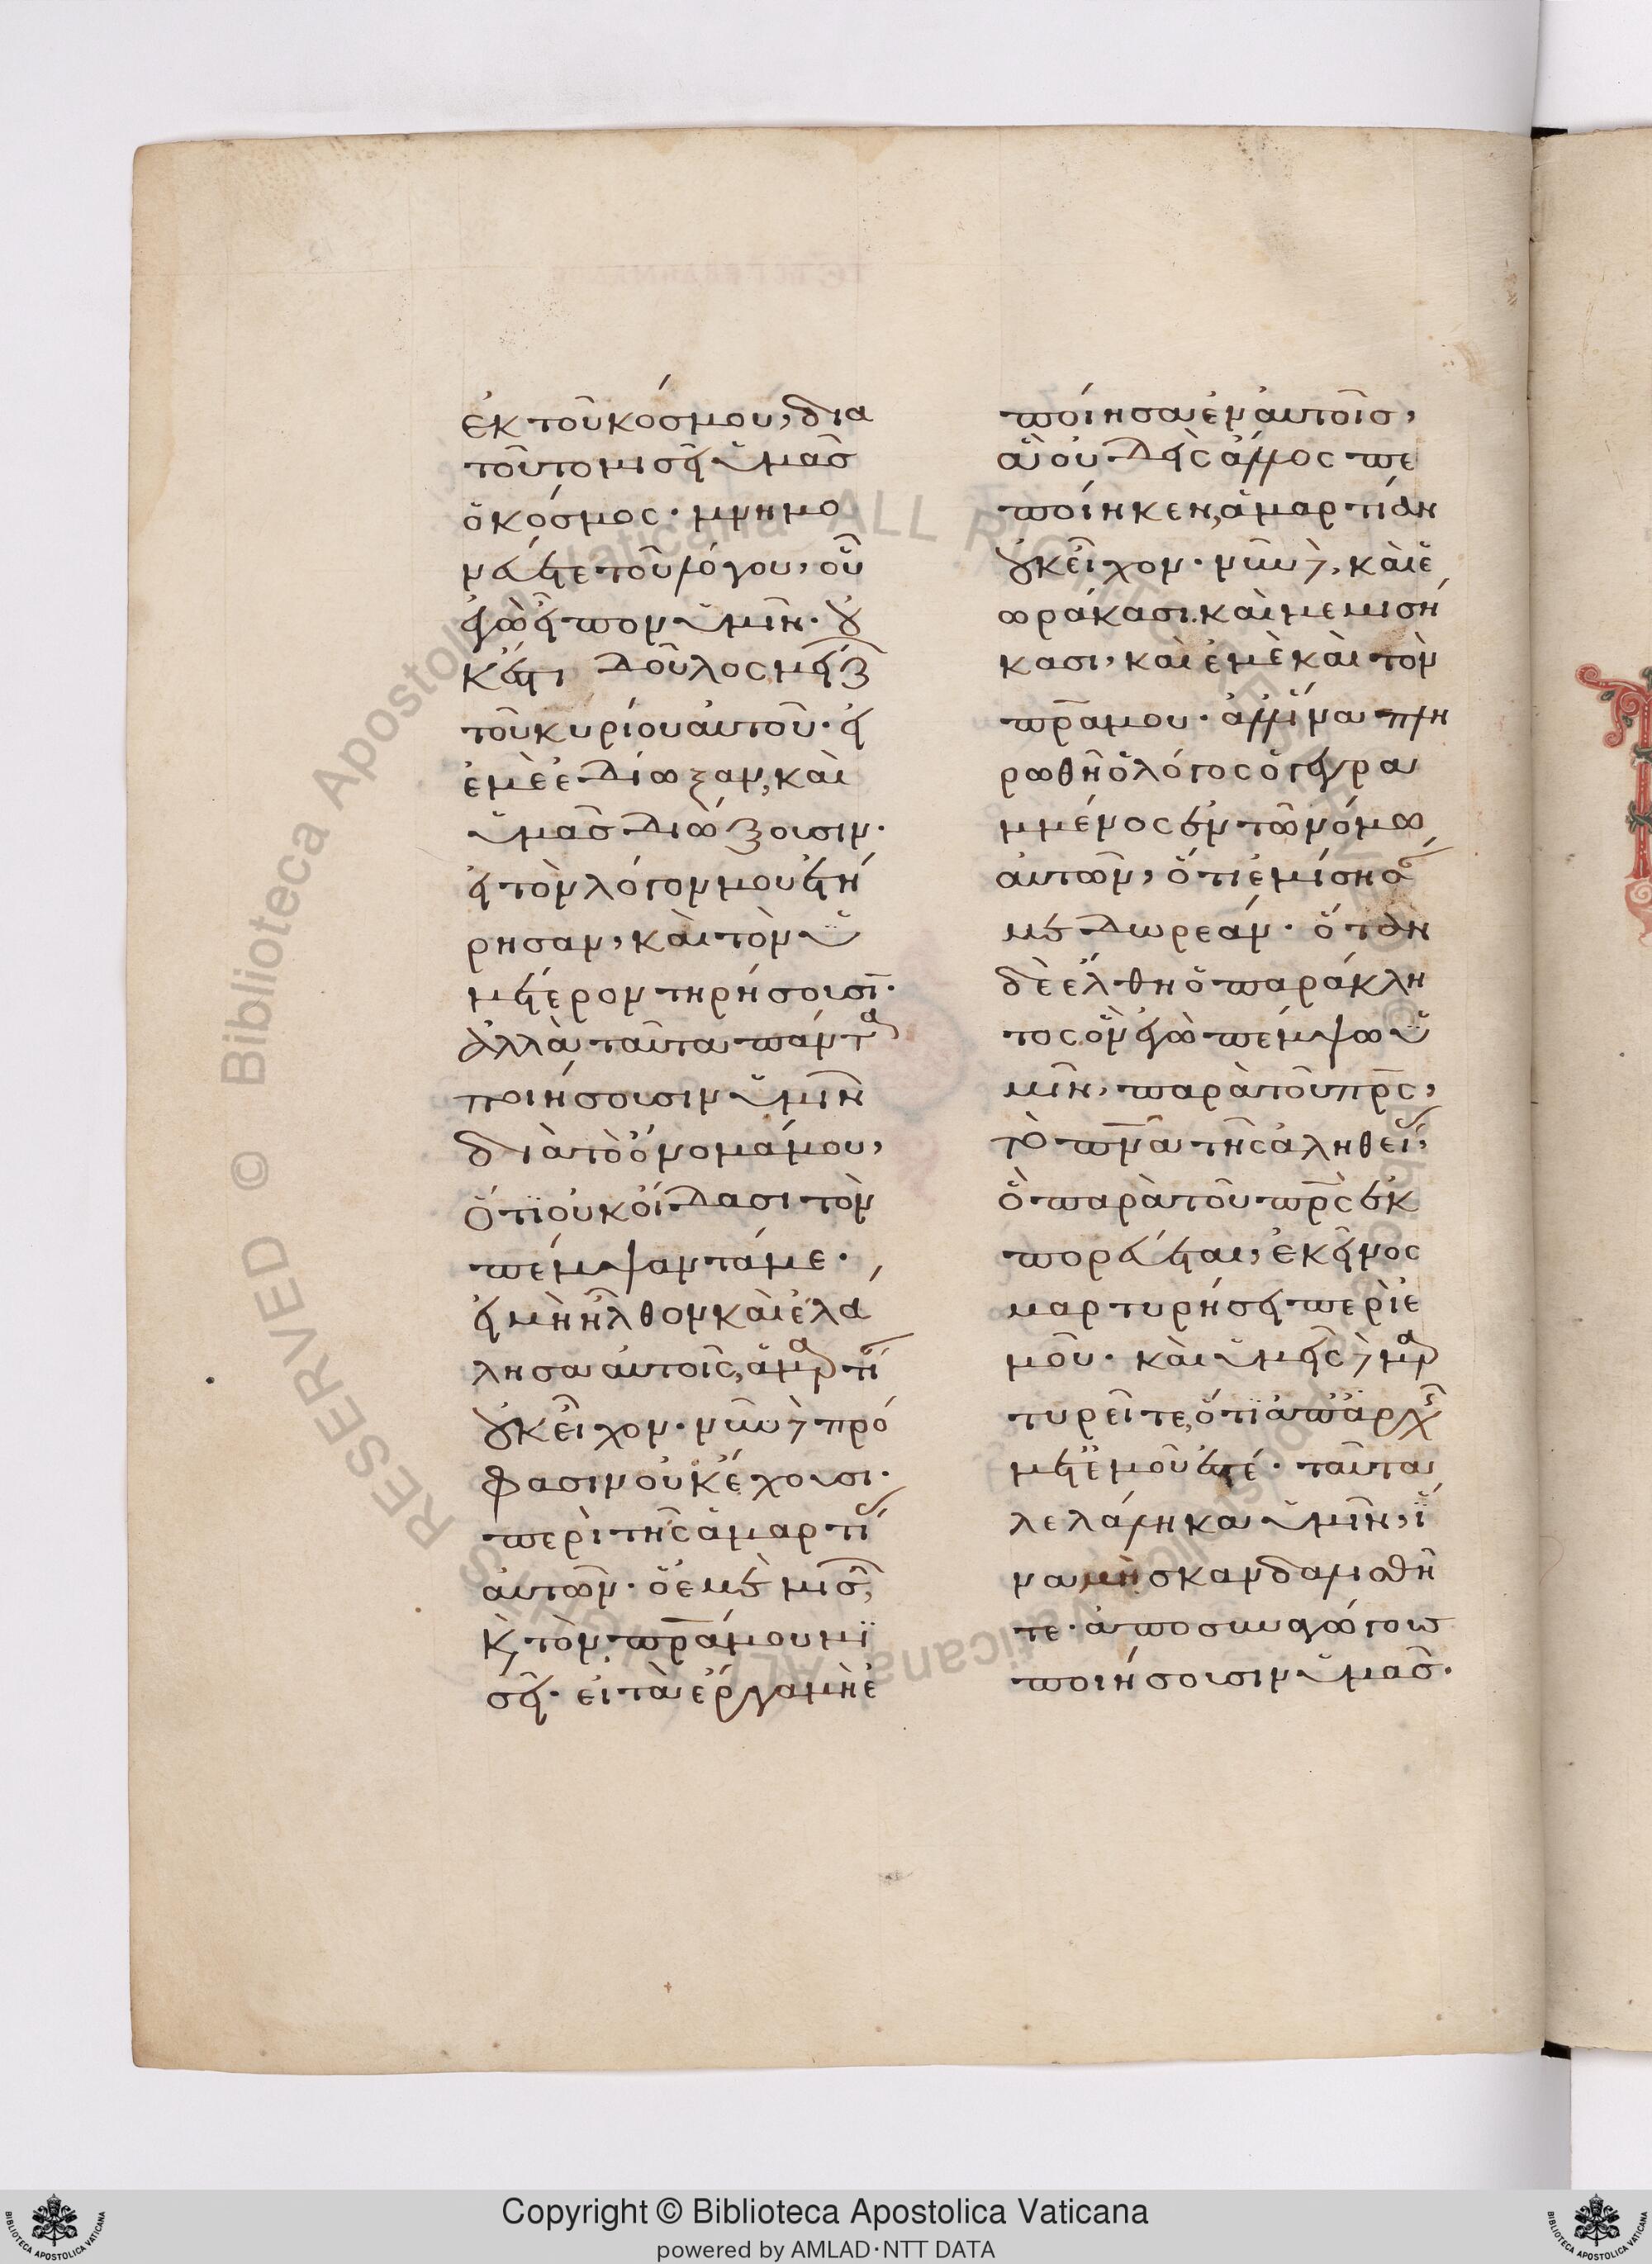 ἐκ τοῦ κόσμου, δια
τοῦτο μισεῖ ὑμᾶς
ὁ κόσμος· μνημο
νεύετε τοῦ λόγου, οὗ
ἐγὼ εἶπον ὑμῖν· οὐ
κέτι δοῦλος μείζ
τοῦ κυρίου αὐτοῦ· εἰ
ἐμὲ ἐδίωξαν, καὶ
ὑμᾶς διώξουσιν·
εἰ τὸν λόγον μου ἐτή
ρησαν, καὶ τὸν ὑ
μέτερον τηρήσουσι·
ἀλλὰ ταῦτα πάντα
ποιήσουσιν ὑμῖν
διὰ τὸ ὄνομά μου,
ὅτι οὐκ οἴδασι τὸν
πέμψαντά με·
εἰ μὴ ἦλθον καὶ ἐλά
λησα αὐτοῖς, ἁμαρτί
οὐκ εἶχον· νῦν δὲ πρό
φασιν οὐκ ἔχουσι·
περὶ τῆς ἁμαρτί
αὐτῶν· ὁ ἐμὲ μισῶ,
κ τὸν πρά μου μι
σεῖ· εἰ τὰ ἔργα μὴ ἐ
ποίησα ἐν αὐτοῖς,
ἃ οὐδεὶς ἄλλος πε
ποίηκεν, ἁμαρτίαν
οὐκ εἶχον· νῦν δὲ, καὶ ἑ
ωράκασι καὶ μεμισή
κασι, καὶ ἐμὲ καὶ τὸν
πρα μου· ἀλλ ἵνα πλη
ρωθῆ ὁ λόγος ὁ γεγρα
μμένος ἐν τῶ νόμω
αὐτῶν, ὅτι ἐμίσησα
με δωρεάν· ὅταν
δὲ ἔλθη ὁ παράκλη
τος ὃν ἐγὼ πέμψω ὑ
μῖν, παρὰ τοῦ πρς,
τὸ πνα τῆς ἀληθεί,
ὃ παρὰ τοῦ πρς ἐκ
πορεύεται, ἐκεῖνος
μαρτυρήσει περὶ ἐ
μοῦ· καὶ ὑμεῖς δὲ μαρ
τυρεῖτε, ὅτι ἀπ ἀρχῆς
μετ ἐμοῦ ἐστέ· ταῦτα
λελάληκα ὑμῖν, ἵ
να μὴ σκανδαλισθῆ
τε· ἀποσυναγώγους
ποιήσουσιν ὑμᾶς·
Copyright © Biblioteca Apostolica Vaticana
powered by AMLAD·NTT DATA